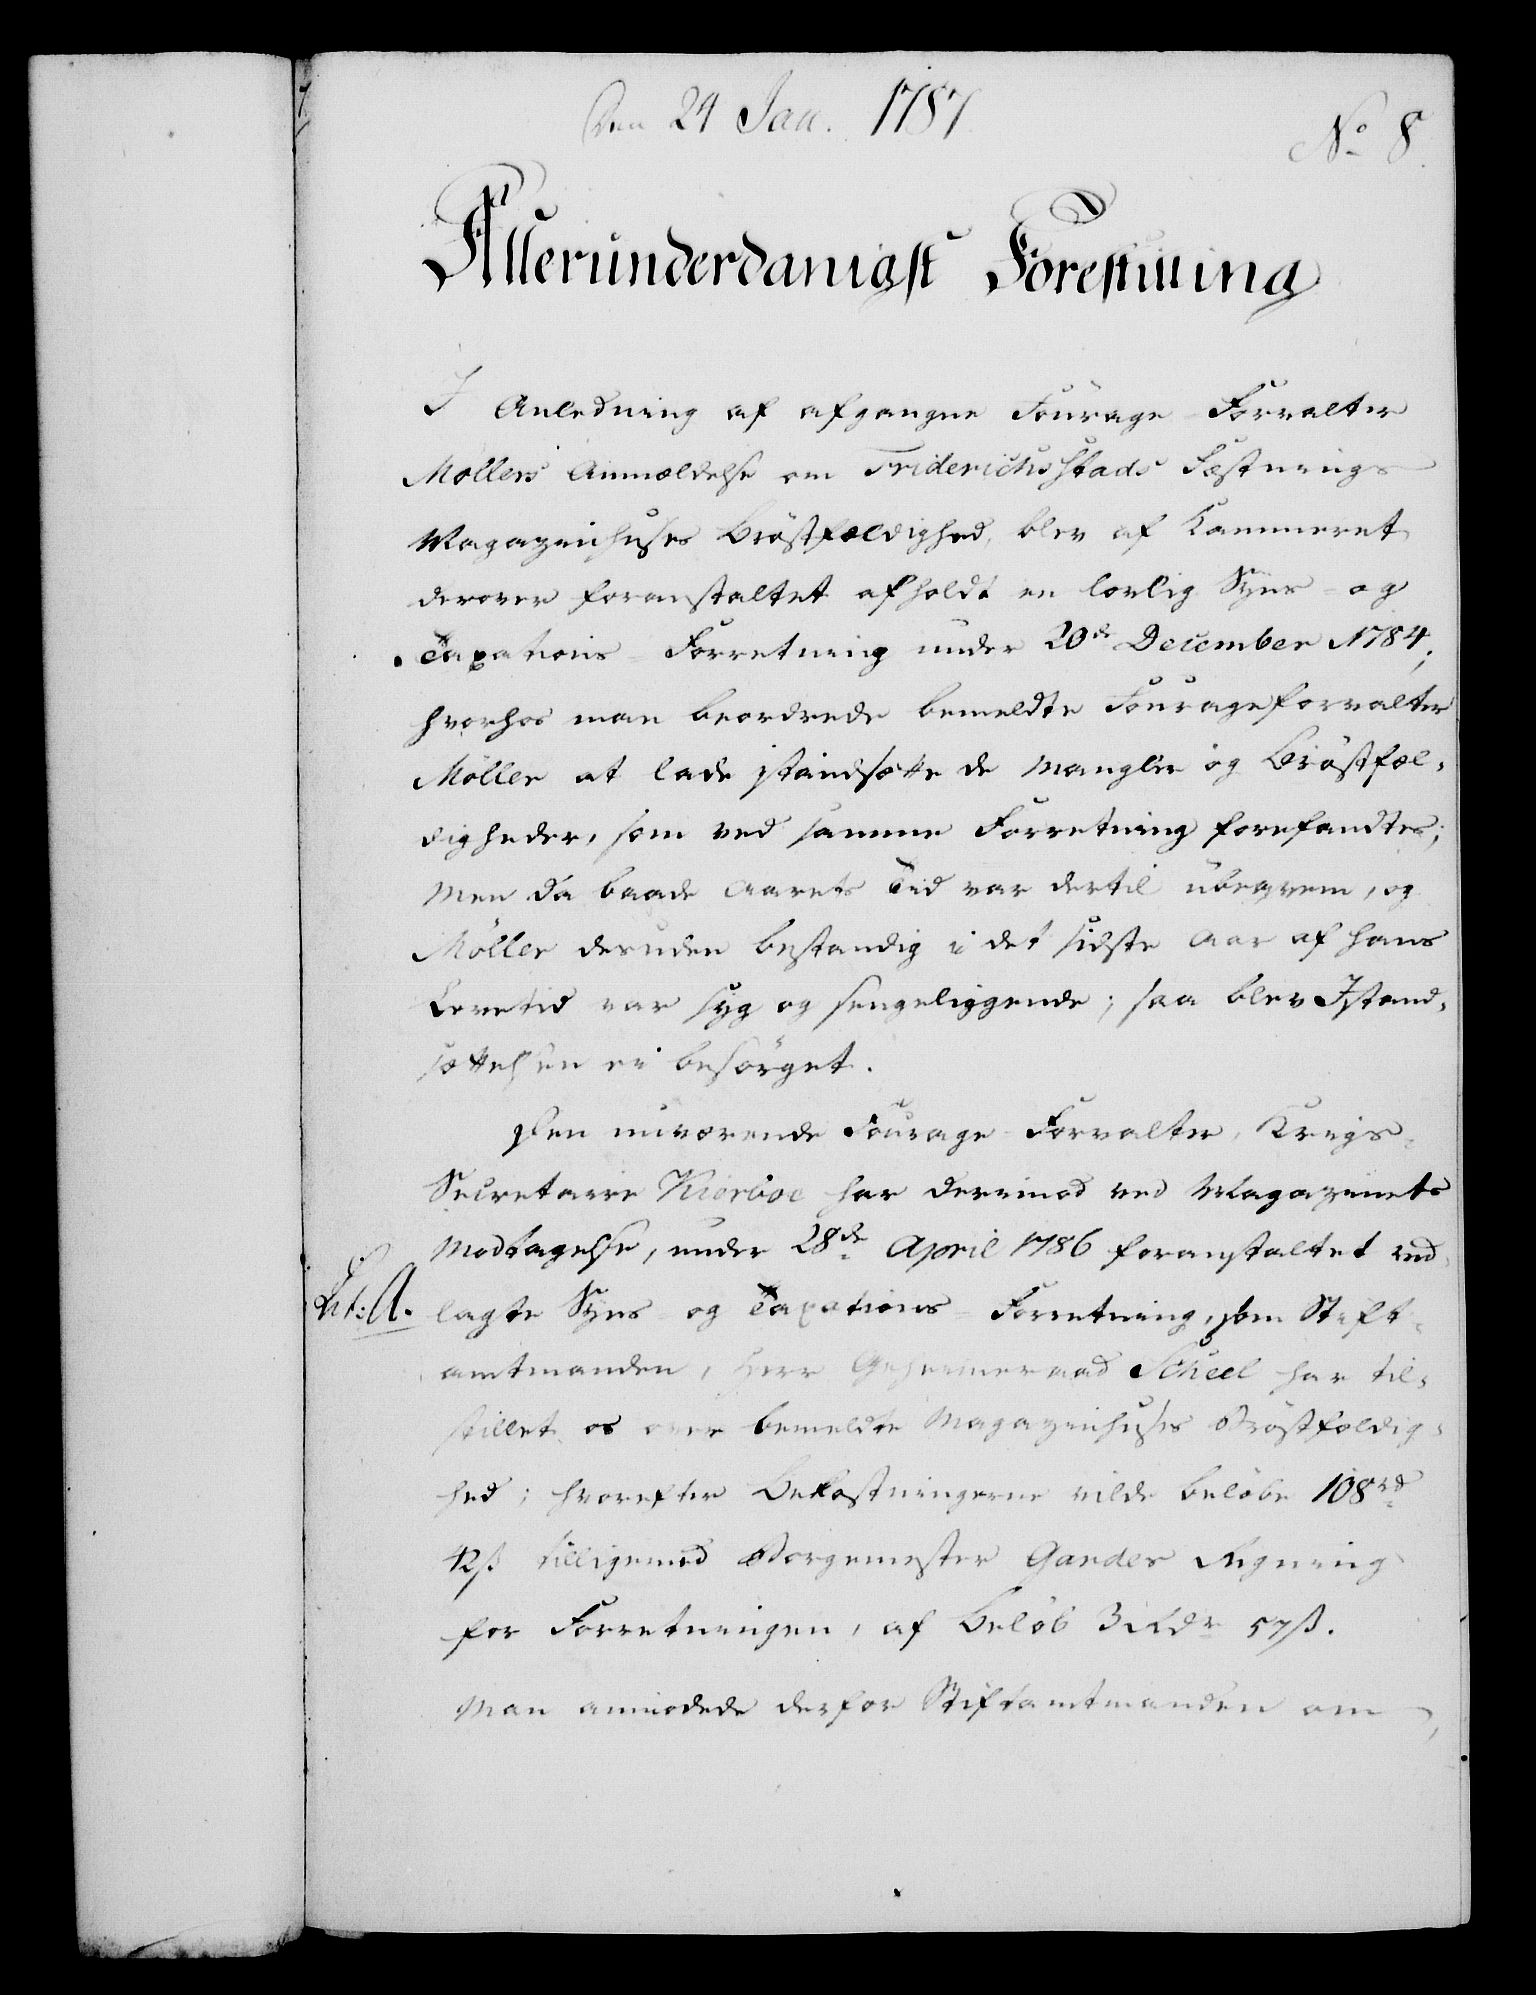 Den 24 Jan. 1787
No 8
Allerunderdanigst Forestilling
I Anledning af afgangne Fourage-Forvalter
Møllers Anmældelse om Friderichsstads Festnings
Magazinhuses Bröstfældighed, blev af Kammeret
derover foranstaltet afholdt en lovlig Syns- og
Taxations-Forretning under 20de December 1784;
hvorhos man beordrede bemeldte Fourageforvalter
Möller at lade istandsætte de Mangler og Bröstfæl-
digheder, som ved samme Forretning forefandtes;
Men da baade Aarets Tid var dertil ubeqvem, og
Möller desuden bestandig i det sidste Aar af hans
Levetid var syg og sengeliggende; saa blev Istand-
sættelsen ei besörget.
Den nuværende Fourage-Forvalter, Krigs-
Secretaire Kieröe har derimod ved Magazinets
Modtagelse, under 28de April 1786 foranstaltet ved-
Lit: A.
lagte Syns- og Taxations-Forretning, som Stift-
amtmanden, Herr Geheimeraad Scheel har til-
stillet os over bemeldte Magazinhuses Bröstfældig-
hed; hvorefter Bekostningerne vilde belöbe 108rd
42ß tilligemed Borgemester Gandes Regning
for Forretningen, af Belöb 3 Rdr 57ß.
Man anmodede derfor Stiftamtmanden om